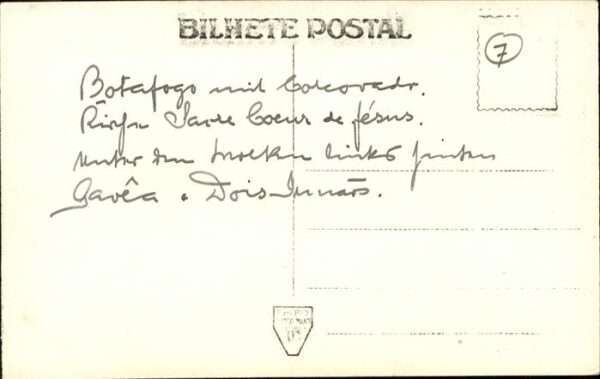 BILHETE POSTAL
7
Botafogo mit Corcovado.
Kirche Sacre Coeur de Jésus.
Unter den Wolken links hinten
Gavêa + Dois Irmãos.